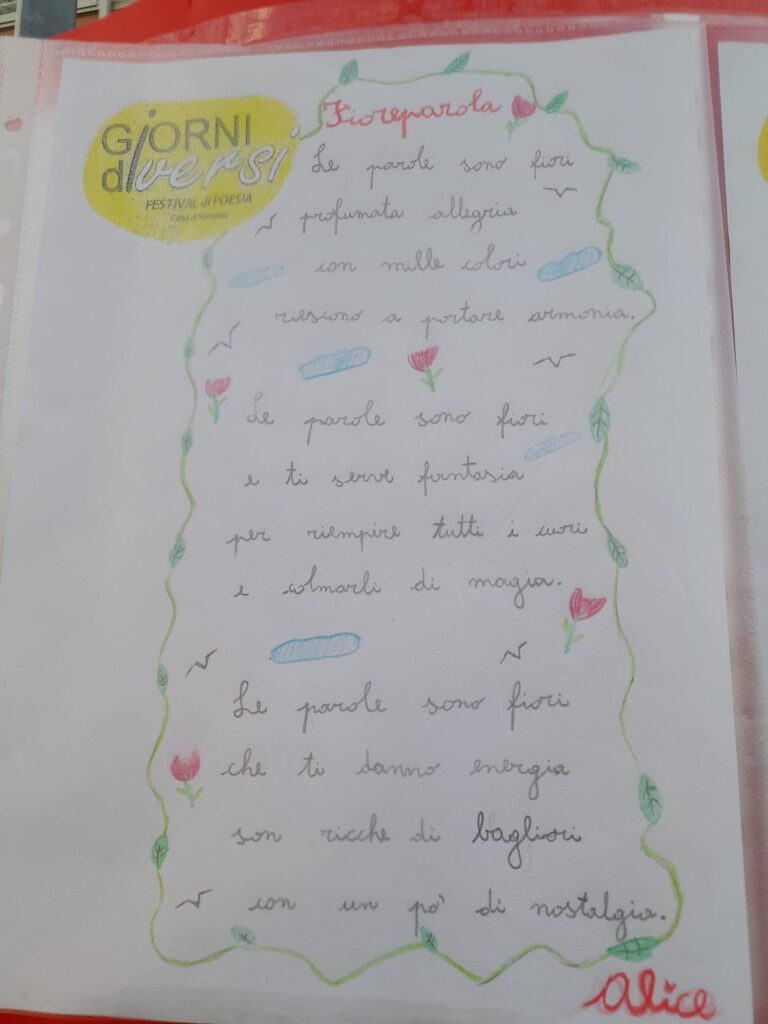 GiORNI
diversi
FESTIVAL di POESIA
Fioreparola
Le parole sono fiori
profumata allegria
con mille colori
riescono a portare armonia.
Le parole sono fiori
e ti serve fantasia
per riempire tutti i cuori
e colmarli di magia.
Le parole sono fiori
che ti danno energia
son ricche di bagliori
con un po' di nostalgia.
Alice